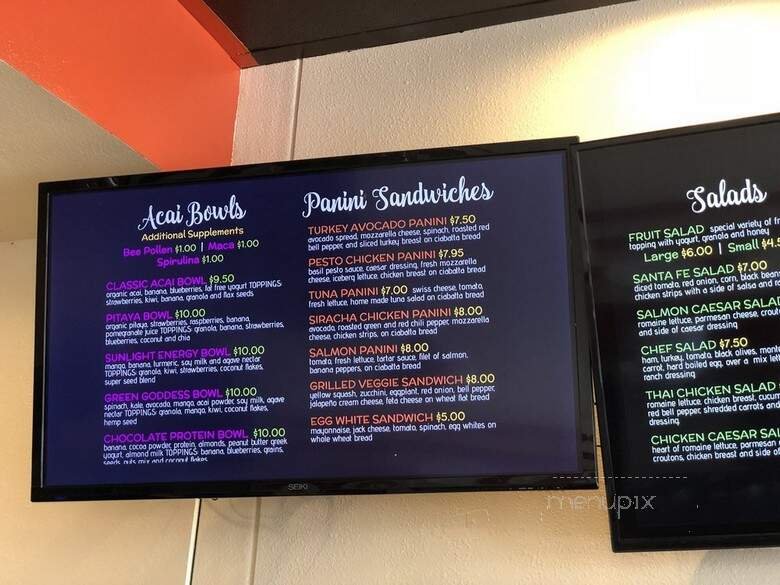 Acai Bowls
Additional Supplements
Bee Pollen $1.00 | Maca $1.00
Spirulina $1.00
CLASSIC ACAI BOWL $9.50
organic acai, banana, blueberries, fat free yogurt TOPPINGS:
strawberries, kiwi, banana, granola and flax seeds
PITAYA BOWL $10.00
organic pitaya, strawberries, raspberries, banana,
pomegranate juice TOPPINGS: granola, banana, strawberries,
blueberries, coconut and chia
SUNLIGHT ENERGY BOWL $10.00
mango, banana, turmeric, soy milk and agave nectar
TOPPINGS: granola, kiwi, strawberries, coconut flakes,
super seed blend
GREEN GODDESS BOWL $10.00
spinach, kale, avocado, mango, acai powder, soy milk, agave
nectar TOPPINGS: granola, mango, kiwi, coconut flakes,
hemp seed
CHOCOLATE PROTEIN BOWL $10.00
banana, cocoa powder, protein, almonds, peanut butter greek
yogurt, almond milk TOPPINGS: banana, blueberries, grains,
seeds, nuts mix and coconut flakes
Panini Sandwiches
TURKEY AVOCADO PANINI $7.50
avocado spread, mozzarella cheese, spinach, roasted red
bell pepper and sliced turkey breast on ciabatta bread
PESTO CHICKEN PANINI $7.95
basil pesto sauce, caesar dressing, fresh mozzarella
cheese, iceberg lettuce, chicken breast on ciabatta bread
TUNA PANINI $7.00 swiss cheese, tomato,
fresh lettuce, home made tuna salad on ciabatta bread
SIRACHA CHICKEN PANINI $8.00
avocado, roasted green and red chili pepper, mozzarella
cheese, chicken strips, on ciabatta bread
SALMON PANINI $8.00
tomato, fresh lettuce, tartar sauce, filet of salmon,
banana peppers, on ciabatta bread
GRILLED VEGGIE SANDWICH $8.00
yellow squash, zucchini, eggplant, red onion, bell pepper,
jalapeño cream cheese, feta cheese on wheat flat bread
EGG WHITE SANDWICH $5.00
mayonnaise, jack cheese, tomato, spinach, egg whites on
whole wheat bread
SEIKI
Salads
FRUIT SALAD special variety of
topping with yogurt, granola and honey
Large $6.00 | Small
SANTA FE SALAD $7.00
diced tomato, red onion, corn, black
chicken strips with a side of salsa and
SALMON CAESAR
romaine lettuce, parmesan cheese,
and side of caesar dressing
CHEF SALAD $7.50
ham, turkey, tomato, black olives,
carrot, hard boiled egg, over a mix
ranch dressing
THAI CHICKEN SALAD
romaine lettuce, chicken breast,
red bell pepper, shredded carrots and
dressing
CHICKEN CAESAR
heart of romaine lettuce, parmesan
croutons, chicken breast and side of
menupix